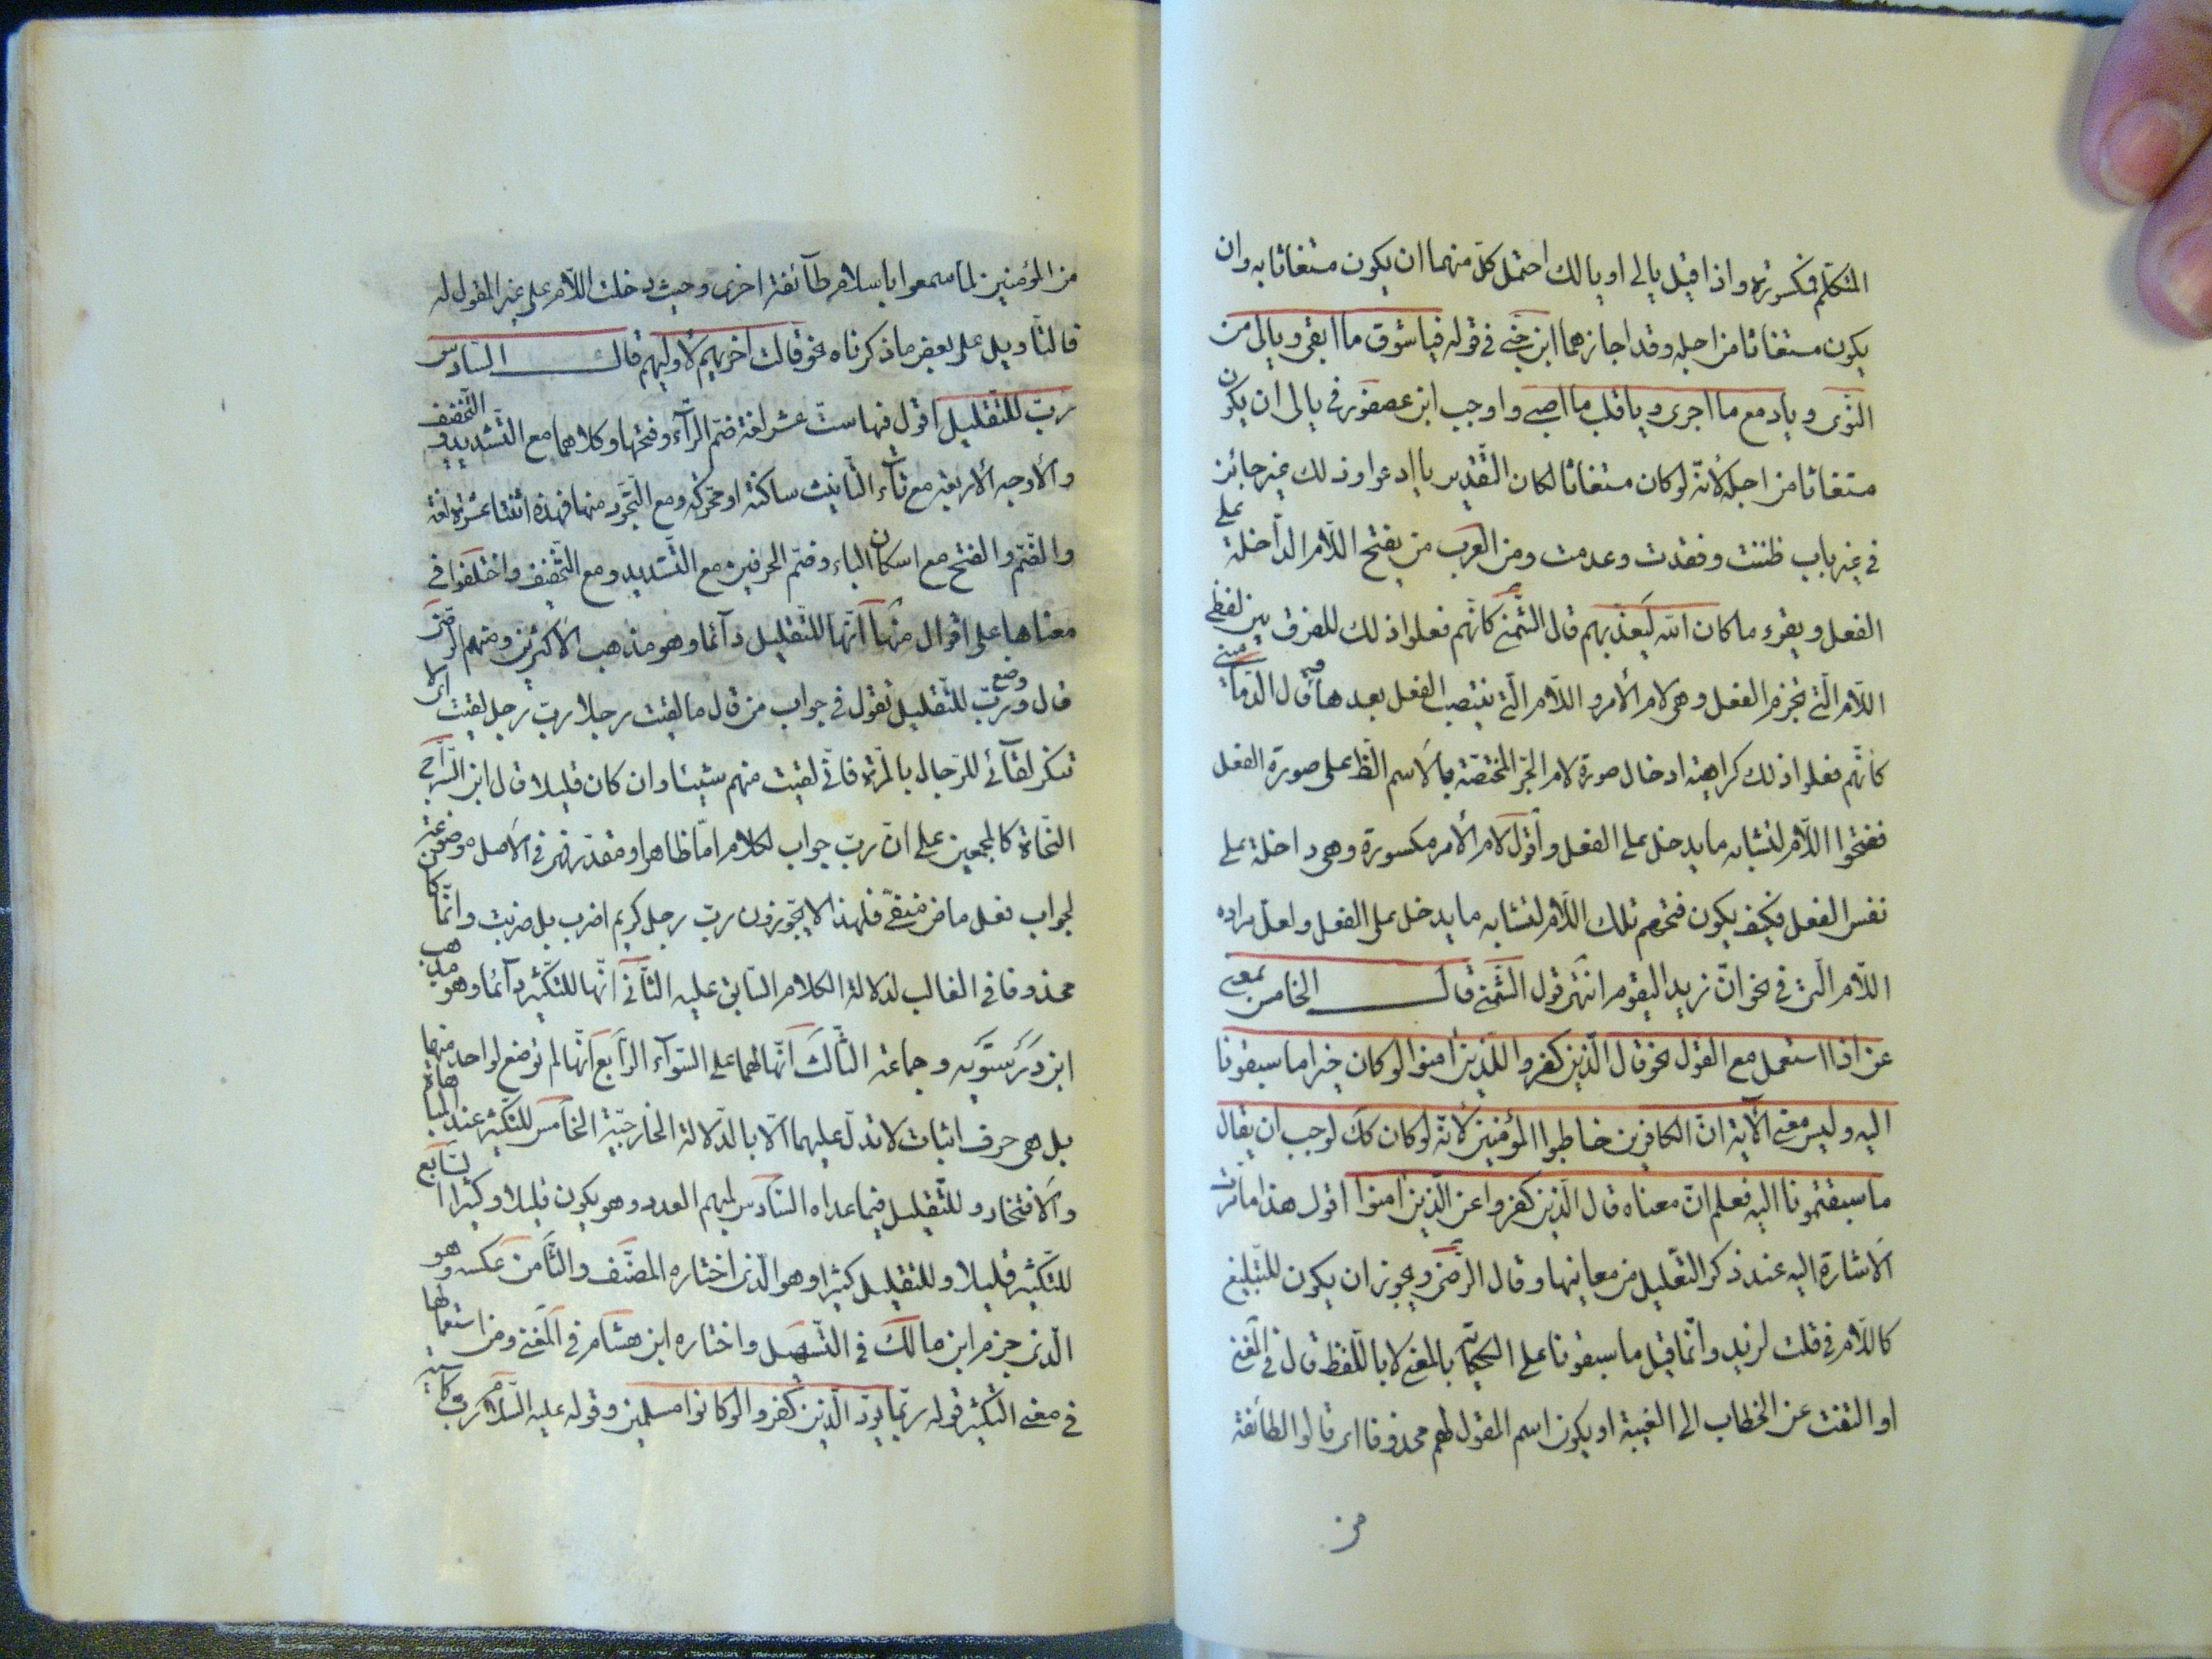 المتكلم فمكسورة واذا قيل يا لى او يا لك احتمل كل منهما ان يكون مستغاثا به وان
يكون مستغاثا من اجله وقد اجازهما ابن جنى في قوله فيا شوق ما ابقى ويا لى من
النوى ويا دمع ما اجرى ويا قلب ما اصبى واوجب ابن عصفور في يا لى ان يكون
مستغاثا من اجله لانه لو كان مستغاثا لكان التقدير يا ادعوا وذلك غير جائز
في غير باب ظننت وفقدت وعدمت ومن العرب من يفتح اللام الداخلة على
الفعل ويقرء ما كان الله ليعذبهم قال الشمنى كانهم فعلوا ذلك للفرق بين لفظى
اللام التى تجزم الفعل وهى لام الأمر واللام التى ينتصب الفعل بعدها وفيه قال الدمامينى
كانهم فعلوا ذلك كراهية ادخال صورة لام الجر المختصة بالاسم الظ على صورة الفعل
ففتحوا اللام لتشابه ما يدخل على الفعل واقول لام الأمر مكسورة وهى داخلة على
نفس الفعل فكيف يكون فتحهم تلك اللام لتشابه ما يدخل على الفعل ولعل مراده
اللام التى في نحو ان زيدا ليقوم انتهى قول الشمنى قال الخامس بمعنى
عن اذا استعمل مع القول نحو قال الذين كفروا للذين امنوا لو كان خيرا ما سبقونا
اليه وليس معنى الآية ان الكافرين خاطبوا المؤمنين لانه لو كان كك لوجب ان يقال
ما سبقتمونا اليه فعلم ان معناه قال الذين كفروا عن الذين امنوا اقول هذا ما مرت
الاشارة اليه عند ذكر التعليل من معانيها وقال الرضى ويجوز ان يكون للتبليغ
كاللام في قلت لزيد وانما قيل ما سبقونا على الحكاية بالمعنى لا باللفظ قال في المغنى
او التفت عن الخطاب الى الغيبة او يكون اسم المقول لهم محذوفا اى قالوا لطائفة
من
من المؤمنين لما سمعوا باسلام طآئفة اخرى وحيث دخلت اللام على غير المقول له
فالتأويل على بعض ما ذكرناه نحو قالت اخريهم لاوليهم قال السادس
رب للتقليل اقول فيها ست عشر لغة ضم الرآء وفتحها وكلاهما مع التشديد والتخفيف
والأوجه الأربعة مع تآء التأنيث ساكنة او محركة ومع التجرد منها فهذه اثنتا عشرة لغة
والضم والفتح مع اسكان الباء وضم الحرفين مع التشديد ومع التخفيف واختلفوا في
معناها على اقوال منها انها للتقليل دآئما وهو مذهب الاكثرين ومنهم الرضى
قال وضع رب للتقليل تقول في جواب من قال ما لقيت رجلا رب رجل لقيت اى لا
تنكر لقآئى للرجال بالمرة فانى لقيت منهم شيئا وان كان قليلا قال ابن السراج
النحاة كالمجمعين على ان رب جواب لكلام اما ظاهر او مقدر فهى في الاصل موضوعة
لجواب فعل ماض منفى فلهذا لا يجوزون رب رجل كريم اضرب بل ضربت وانما كان
محذوفا في الغالب لدلالة الكلام السابق عليه الثانى انها للتكثير دآئما وهو مذهب
ابن درستويه وجماعة الثالث انها لهما على السوآء الرابع انها لم توضع لواحد منهما
بل هى حرف اثبات لا تدل عليهما الا بالدلالة الخارجية الخامس للتكثير عند المباهاة
والافتخار وللتقليل فيما عداه السادس لمبهم العدد وهو يكون قليلا وكثيرا السابع
للتكثير قليلا وللتقليل كثيرا وهو الذى اختاره المصنف والثامن عكسه وهو
الذى جزم ابن مالك في التسهيل واختاره ابن هشام في المغنى ومن استعمالها
في معنى التكثير قوله ربما يود الذين كفروا لو كانوا مسلمين وقوله عليه السلام رب كاسية